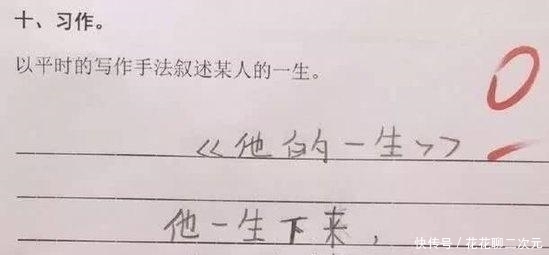 十、习作。
以平时的写作手法叙述某人的一生。
0
《他的一生》
他一生下来，
快传号／花花聊二次元